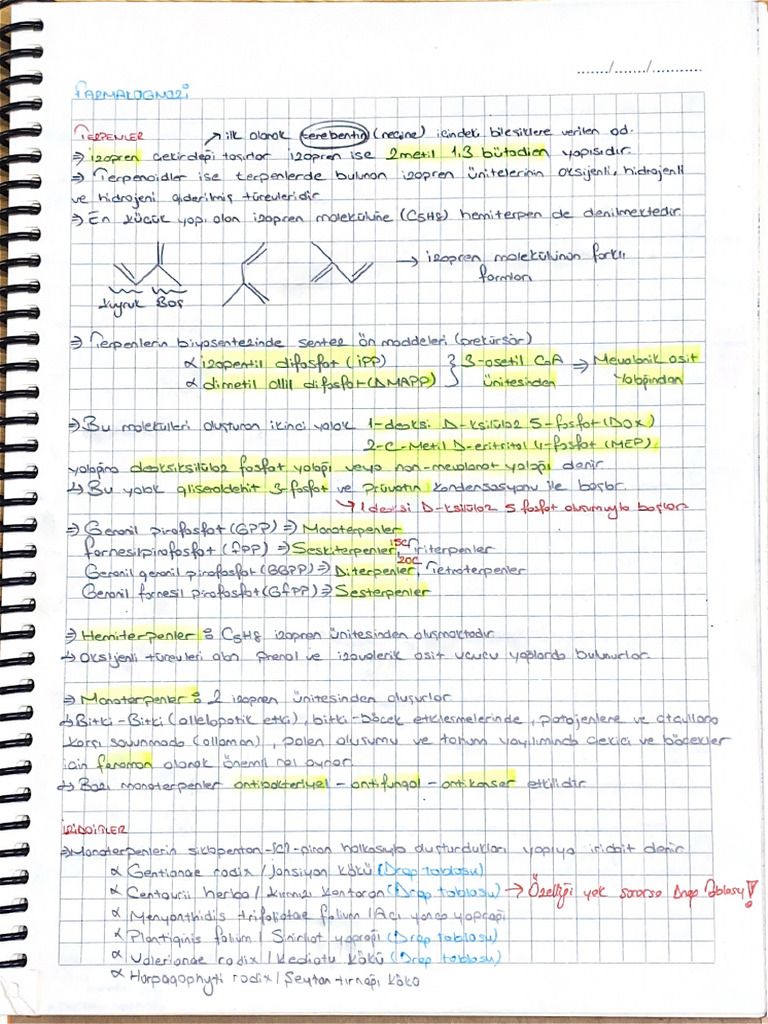 ......./......./...........
FARMAKOGNOZİ
TERPENLER ↗ ilk olarak terebentin (reçine) içindeki bileşiklere verilen ad.
⇒ izopren çekirdeği taşırlar izopren ise 2metil 1,3 bütadien yapısıdır.
⇒ Terpenoidler ise terpenlerde bulunan izopren ünitelerinin oksijenli, hidrojenli
ve hidrojeni giderilmiş türevleridir
⇒ En küçük yapı olan izopren molekülüne (C5H8) hemiterpen de denilmektedir.
→ izopren molekülünün farklı
formları
Kuyruk Baş
⇒ Terpenlerin biyosentezinde sentez ön maddeleri (prekürsör)
α izopentil difosfat (IPP) } 3-asetil CoA ⇒ Mevalonik asit
α dimetil allil difosfat (DMAPP) } ünitesinden yolağından
⇒ Bu molekülleri oluşturan ikinci yolak 1-deoksi D-ksilüloz 5-fosfat (DOX)
2-C-Metil D-eritritol 4-fosfat (MEP)
yolağına deoksiksilüloz fosfat yolağı veya non-mevalonat yolağı denir
↳ Bu yolak gliseraldehit 3-fosfat ve prüvatın kondensasyonu ile başlar.
↳ 1 deoksi D-ksilüloz 5 fosfat oluşumuyla başlar
⇒ Geranil pirofosfat (GPP) ⇒ Monoterpenler
farnesilpirofosfat (fPP) ⇒ Seskiterpenler 15C, Triterpenler
Geranil geranil pirofosfat (GGPP) ⇒ Diterpenler 20C, Tetraterpenler
Geranil farnesil pirofosfat (GfPP) ⇒ Sesterpenler
⇒ Hemiterpenler : C5H8 izopren ünitesinden oluşmaktadır
↳ Oksijenli türevleri olan prenol ve izovalerik asit uçucu yağlarda bulunurlar.
⇒ Monoterpenler : 2 izopren ünitesinden oluşurlar
↳ Bitki-Bitki (allelopatik etki), bitki-böcek etkileşmelerinde, patojenlere ve otçullara
karşı savunmada (allomon), polen oluşumu ve tohum yayılımında çekici ve böcekler
için feromon olarak önemli rol oynar
↳ Bazı monoterpenler antibakteriyel - antifungal - antikanser etkilidir
İRİDOİTLER
⇒ Monoterpenlerin siklopentan-[c]-piran halkasıyla oluşturdukları yapıya iridoit denir
α Gentianae radix / Jansiyan kökü (Drog tablosu)
α Centaurii herba / kırmızı kantaron (Drog tablosu) → Özelliği yok sorarsa Drog Tablosu!
α Menyanthidis trifoliatae folium / Acı yonca yaprağı
α Plantiginis folium / Sinirliot yaprağı (Drog tablosu)
α Valerianae radix / Kediotu kökü (Drog tablosu)
α Harpagophyti radix / Şeytan tırnağı kökü